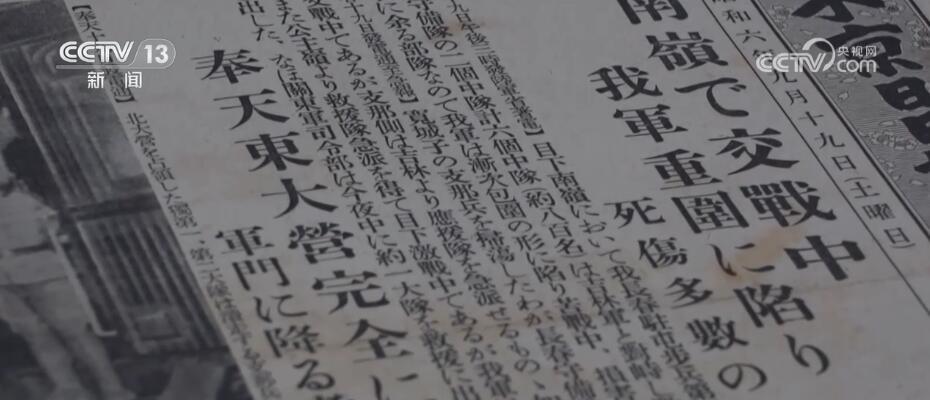 CCTV 13
新闻
央视网
CCTV.com
東京日
昭和六年九月十九日（土曜日）
南嶺で交戰中
我軍重圍に陷り
死傷多數の
目下南嶺において我長春駐屯步兵第
守備隊の二個中隊計六個中隊（約八百名）は吉林軍と對峙し
に余る部隊なので我軍は漸次包圍の形に陷り苦戰中、損害
寬城子の支那兵を掃蕩したわが長春守備
支戰中であるが支那側は吉林より應援隊を急派せるもの
また公主嶺より救援隊急派を得て目下激戰中であるが我軍
出した、なほ關東軍司令部は今夜中に約一大隊を救援に出
奉天東大營完全に
軍門に降る
北大營を占領した